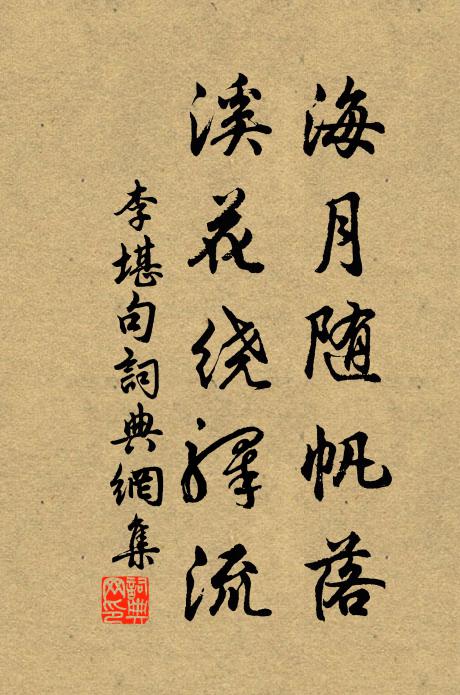 海月随帆落
溪花绕驛流
李堪句詞典網集
詞典网印